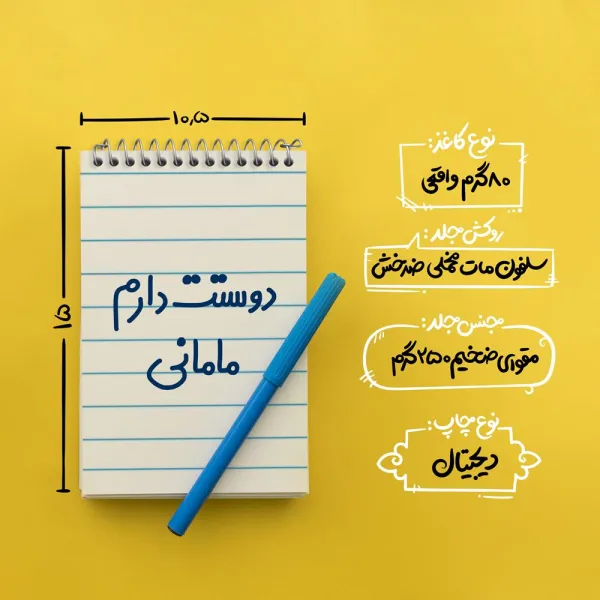 ۱۰٫۵
۱۵
دوستت دارم
مامانی
نوع کاغذ:
۸۰گرم واقعی
روکش جلد:
سلفون مات مخملی ضدخش
جنس جلد:
مقوای ضخیم ۲۵۰گرم
نوع چاپ:
دیجیتال